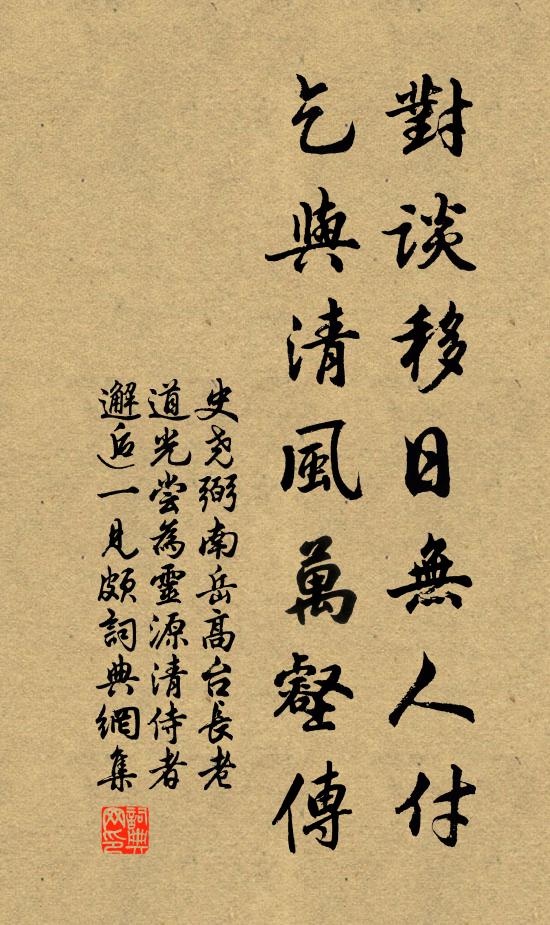 對談移日無人付
乞與清風萬壑傳
史堯弼南岳高台長老
道光嘗為靈源清侍者
邂逅一見頗詞典網集
詞典
网印